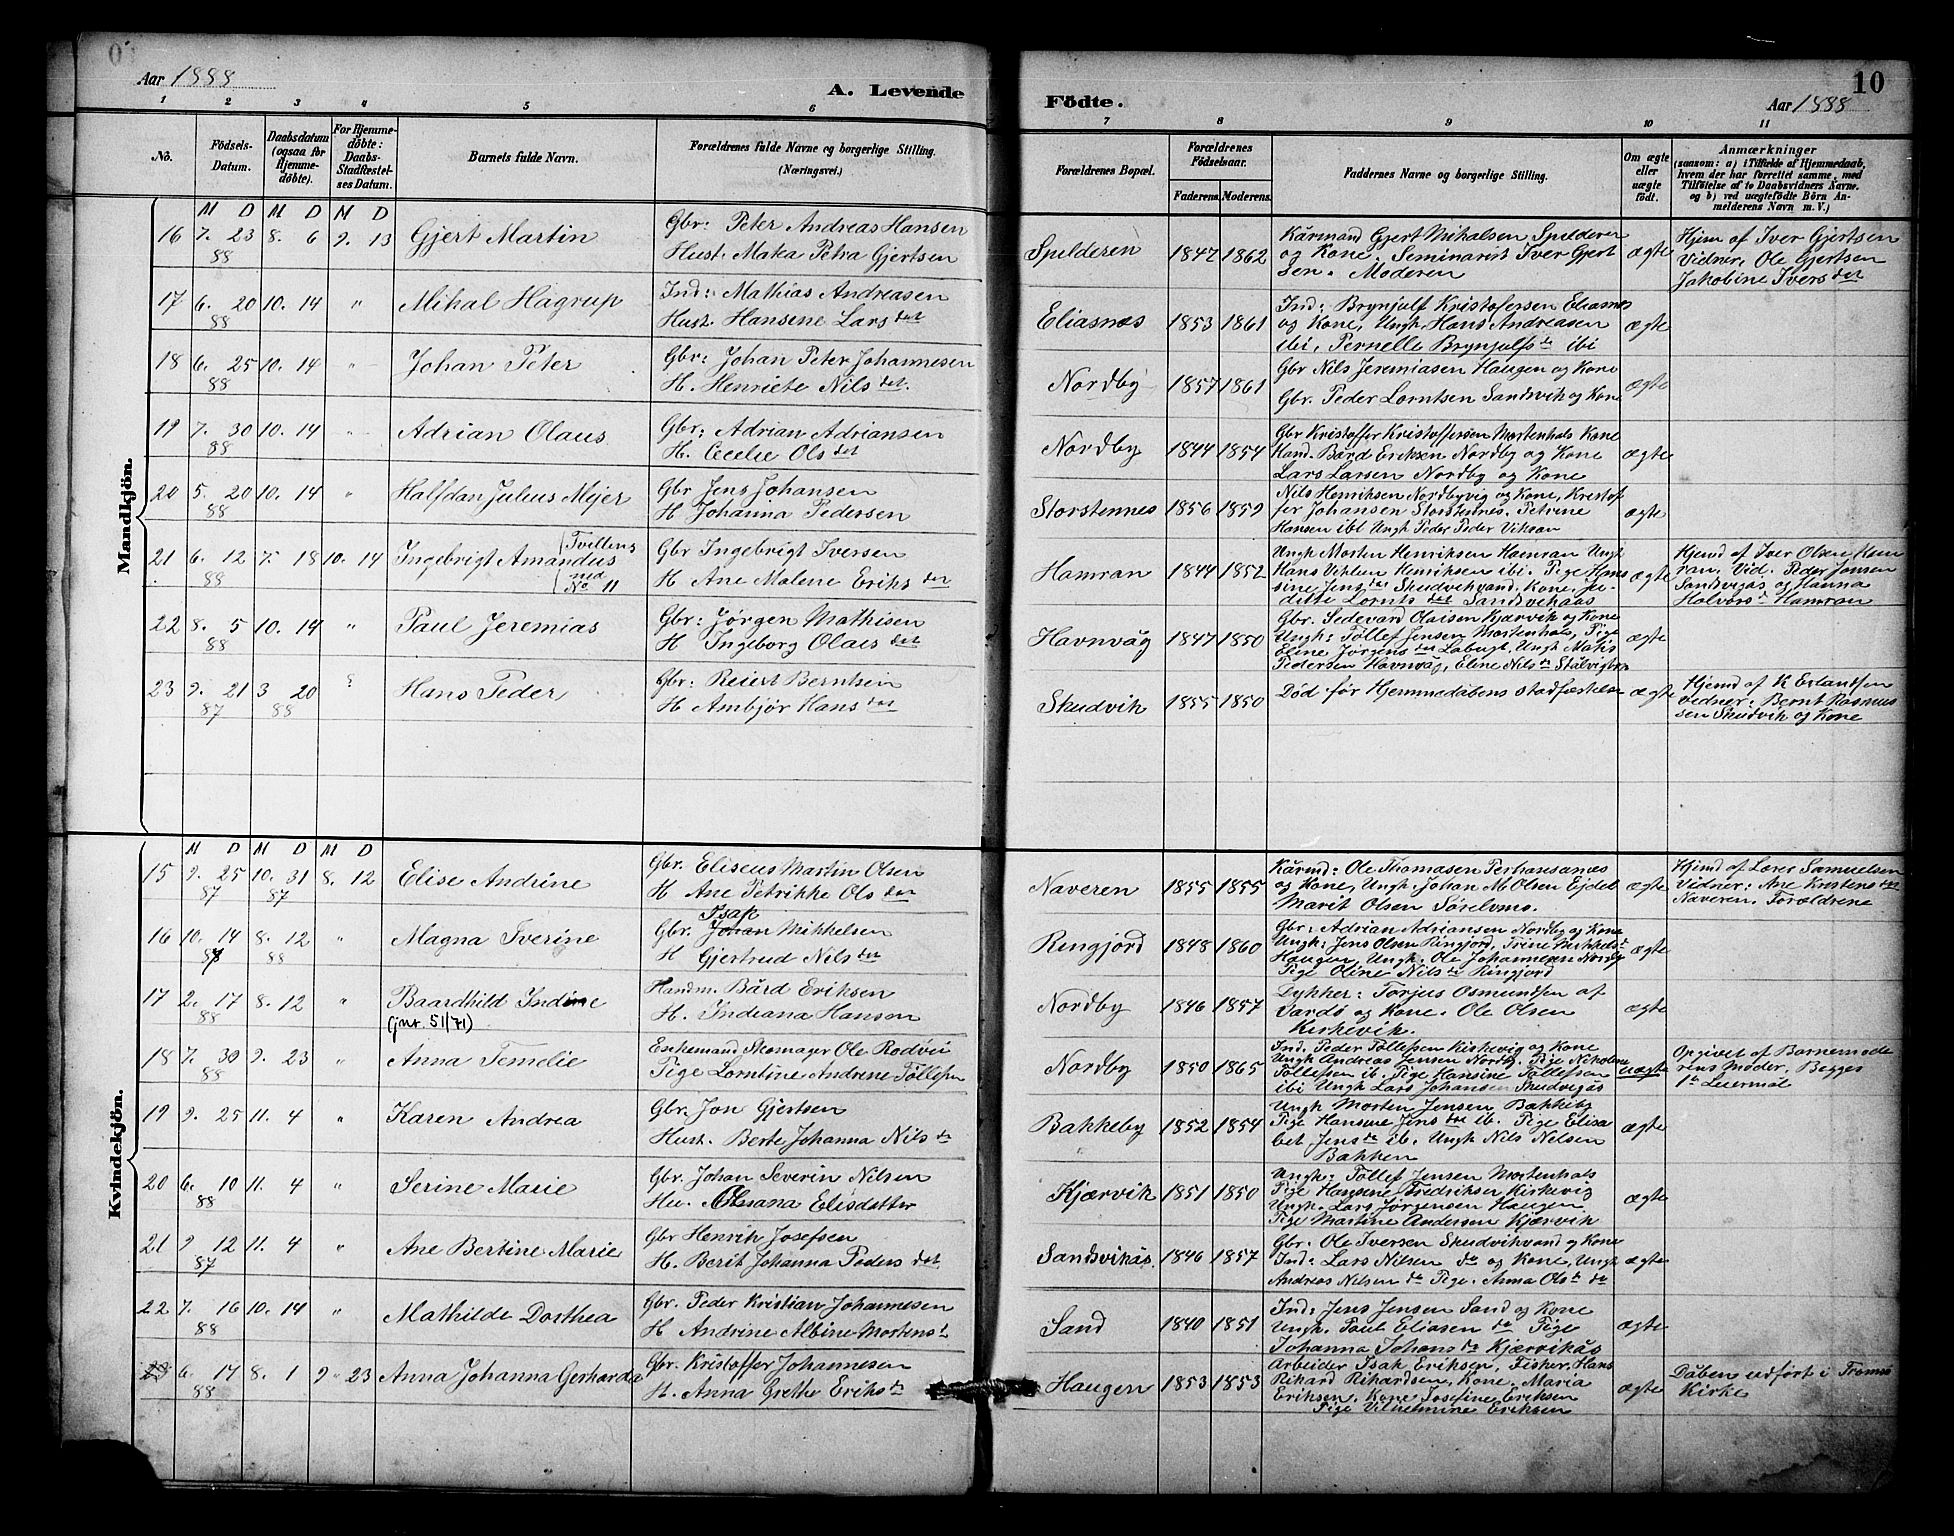 Aar 1888
A. Levende
Födte.
Aar 1888
10
1 2 3 4 5 6 7 8 9 10 11
No.
Födsels-
Datum.
Daabsdatum
(ogsaa for
Hjemme-
döbte).
For Hjemme-
döbte:
Daabs-
Stadfæstel-
ses Datum.
Barnets fulde Navn.
Forældrenes fulde Navne og borgerlige Stilling.
(Næringsvei.)
Forældrenes Bopæl.
Forældrenes
Födselsaar.
Faderens. Moderens.
Faddernes Navne og borgerlige Stilling.
Om ægte
eller
uægte
födt.
Anmærkninger
(saasom: a) i Tilfælde af Hjemmedaab,
hvem der har forrettet samme, med
Tilföielse af to Daabsvidners Navne.
og b) ved uægtefödte Börn An-
melderens Navn m. V.)
Mandkjön.
M D M D M D
16 7. 23 8. 6 9. 13 Gjert Martin
88
Gbr: Peter Andreas Hansen
Hust. Maka Petra Gjertsen
Spilderen 1847 1862
Kårmand Gjert Mihalsen Spilderen
og Kone. Seminarist Iver Gjert
sen. Moderen
ægte
Hjem af Iver Gjertsen
Vidner, Ole Gjertsen
Jakobine Ivers det
17 6. 20 10. 14 " Mihal Hagrup
88
Ind: Mathias Andreasen
Hust. Hansine Lars det
Eliasnæs 1853 1861
Ind: Brynjulf Kristofersen Eliasnes
og Kone, Ungk. Hans Andreasen
ibi, Pernelle Brynjulfs dt ibi
ægte
18 6. 25 10. 14 " Johan Peter
88
Gbr: Johan Peter Johannesen
H. Henriete Nils det.
Nordby 1857 1861
Gbr Nils Jeremiasen Haugen og Kone
Gbr. Peder Lorntsen Sandvik og Kone
ægte
19 7. 30 10. 14 " Adrian Olaus
88
Gbr: Adrian Adriansen
H. Cecelie Ols det
Nordby 1844 1854
Gbr Kristoffer Kristoffersen Mortenhals Kone
Hand. Bård Eriksen Nordby og Kone
Lars Larsen Nordby og Kone
ægte
20 5. 20 10. 14 " Halfdan Julius Mejer
88
Gbr Jens Johansen
H Johanna Pedersen
Storstennes 1856 1859
Nils Henriksen Nordbyvig og Kone, Kristof
fer Johansen Storstennes. Petrine
Hansen ibi Ungk Peder Peder Viksan
ægte
21 6. 12 7. 18 10. 14 Ingebrigt Amandus
88
Tvilling
med
No 11
Gbr Ingebrigt Iversen
H Ane Malene Eriks det
Hamran 1844 1852
Ungk Morten Henriksen Hamran Ungk
Hans Vihlem Henriksen ibi. Pige Han
sine Jens det Skudvikvand, Kone, Ju-
ditte Lornts det Sandvikaas
ægte
Hjemd af Iver Olsen Ham
ran. Vid. Peder Jensen
Sandvigås og Hanna
Halvors dt Hamran
22 8. 5 10. 14 " Paul Jeremias
88
Gbr: Jørgen Mathisen
H Ingeborg Olais det
Havnvåg 1847 1850
Gbr. Sedevard Olaisen Kjærvik og Kone
Ungk: Tøllef Jensen Mortenhals, Pige
Eline Jørgens det Labugt, Ungk Mats
Pedersen Havnvåg, Eline Nils dt
ægte
23 9. 21 3 20 Hans Peder
87 88
Gbr: Reiert Berntsen
H Ambjør Hans det
Skudvik 1855 1850
Død før Hjemmedåbens stadfæstelse
ægte
Hjemd af K Erlandsen
Vidner: Bernt Rasmus
sen Skudvik og Kone
Kvindekjön.
M D M D M D
15 9. 25 10. 31 8. 12 Elise Andrine
87 87
Gbr. Eliseus Martin Olsen
H Ane Petrikke Ols det
Naveren 1855 1855
Kårmd: Ole Thomasen
og Kone, Ungk. Johan M. Olsen Ejdet
Marit Olsen Sørelvmo.
ægte
Hjemd af Lars Samuelsen
Vidner: Ane Kristens det
Naveren. Forældrene
16 10. 14 8. 12 " Magna Iverine
88
Isak
Gbr. Johan Mikkelsen
H Gjertrud Nils det
Ringjord 1848 1860
Gbr: Adrian Adriansen Nordby og Kone
Ungk: Jens Olsen Ringjord, Trine Mikkels dt
Haugen, Ungk: Ole Johannesen Nordby
Pige Oline Nils dt Ringjord
ægte
17 2. 17 8. 12 " Baardhild Indine
88
(jnr. 51/71)
Handm. Bård Eriksen
H. Indiana Hansen
Nordby 1846 1857
Dykker: Torjus Osmundsen af
Vardø og Kone. Ole Olsen
Kirkevik.
ægte
18 7. 30 9. 23 " Anna Temelie
88
Enkemand Skomager Ole Rødvei
Pige Lorntine Andrine Tøllefsen
Nordby 1850 1865
Ind. Peder Tøllefsen Kirkevig og Kone
Ungk Andreas Jensen Nordby. Pige Nikoline
Tøllefsen ib. Pige Hansine Tøllefsen
ibi Ungk Lars Johansen Skudvigås
uægte
Opgivet af Barnemode
rens Moder. Begges
1te Leiermål
19 9. 25 11. 4 " Karen Andrea
88
Gbr: Jon Gjertsen
Hust. Berte Johanna Nils dt
Bakkeby 1852 1854
Ungk Morten Jensen Bakkeby
Pige Hansine Jens det ib. Pige Elisa
bet Jens dt ib. Ungk Nils Nilsen
Bakken
ægte
20 6. 10 11. 4 " Serine Marie
88
Gbr. Johan Severin Nilsen
Hu. Elisdatter
Kjærvik 1851 1850
Ungk: Tøllef Jensen Mortenhals
Pige Hansine Fredriksen Kirkevig
Ungk. Lars Jørgensen Haugen
Pige Martine Andersen Kjærvik
ægte
21 9 12 11. 4 " Ane Bertine Marie
87
Gbr Henrik Josefsen
H. Berit Johanna Peders det
Sandvikås. 1846 1857
Gbr: Ole Iversen Skudvikvand og Kone
Ind: Lars Nilsen do og Kone, Ungk
Andreas Nilsen do Pige. Anna Ols dt do
ægte
22 7. 16 10. 14 " Mathilde Dorthea
88
Gbr. Peder Kristian Johannesen
H Andrine Albine Mortens dt
Sand 1840 1851
Ind: Jens Jensen Sand og Kone
Ungk. Paul Eliasen do Pige
Johanna Johans dt Kjærvikås
ægte
23 6. 17 8. 1 9 23 Anna Johanna Gerharda
88
Gbr. Kristoffer Johannesen
H. Anna Grethe Eriks dt
Haugen 1853 1853
Arbeider Isak Eriksen, Fisker. Hans
Rikard Rikardsen, Kone, Maria
Eriksen, Kone Josefine Eriksen
Pige Vilhelmine Eriksen
ægte
Dåben udført i Tromsø
Kirke